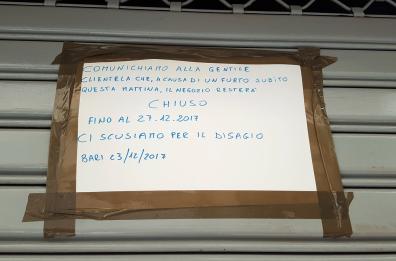 COMUNICHIAMO ALLA GENTILE
CLIENTELA CHE, A CAUSA DI UN FURTO SUBITO
QUESTA MATTINA, IL NEGOZIO RESTERA'
CHIUSO
FINO AL 27.12.2017
CI SCUSIAMO PER IL DISAGIO
BARI 23/12/2017